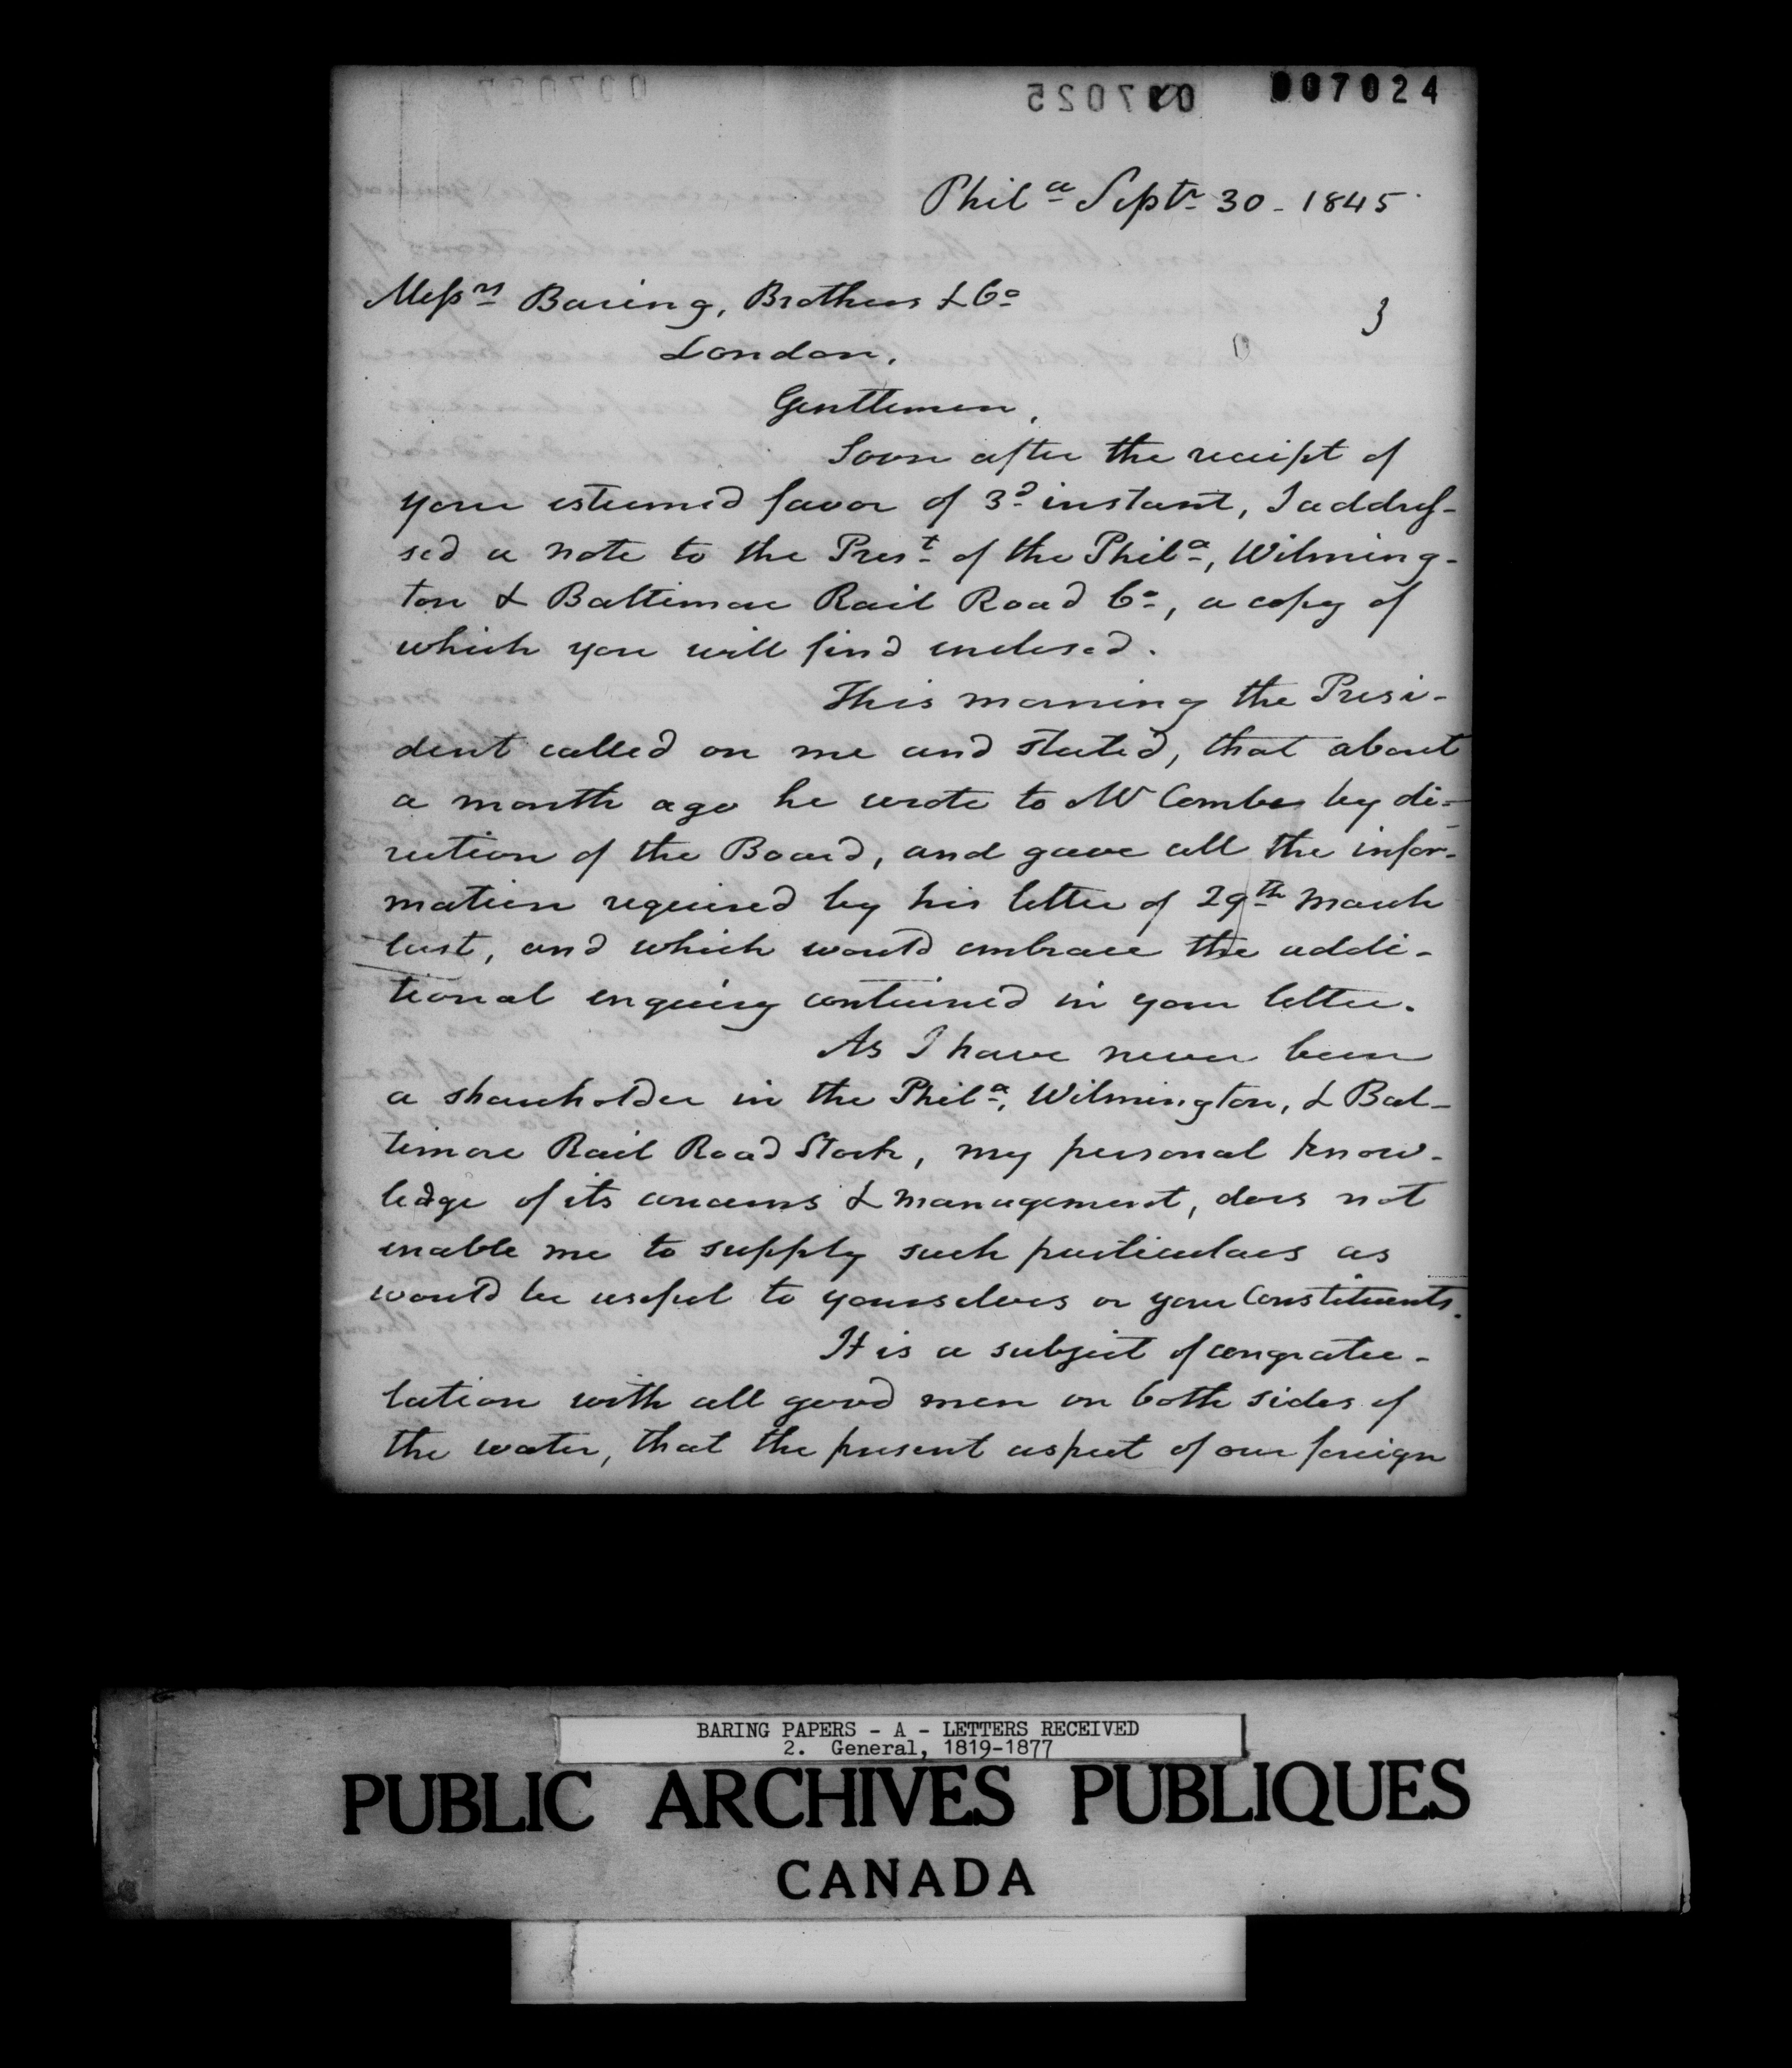 007024
007025
007027
Phila Septr 30 - 1845
Messrs Baring, Brothers & Co
3
London,
Gentlemen,
Soon after the receipt of
your esteemed favor of 3d instant, I addres-
sed a note to the Prest of the Phila, Wilming-
ton & Baltimore Rail Road Co, a copy of
which you will find enclosed.
This morning the Presi-
dent called on me and stated, that about
a month ago he wrote to Mr Combe by di-
rection of the Board, and gave all the infor-
mation required by his letter of 29th March
last, and which would embrace the addi-
tional enquiry contained in your letter.
As I have never been
a shareholder in the Phila, Wilmington, & Bal-
timore Rail Road Stock, my personal know-
ledge of its concerns & management, does not
enable me to supply such particulars as
would be useful to yourselves or your Constituents.
It is a subject of congratu-
lation with all good men on both sides of
the water, that the present aspect of our foreign
BARING PAPERS - A - LETTERS RECEIVED
2. General, 1819-1877
PUBLIC ARCHIVES PUBLIQUES
CANADA